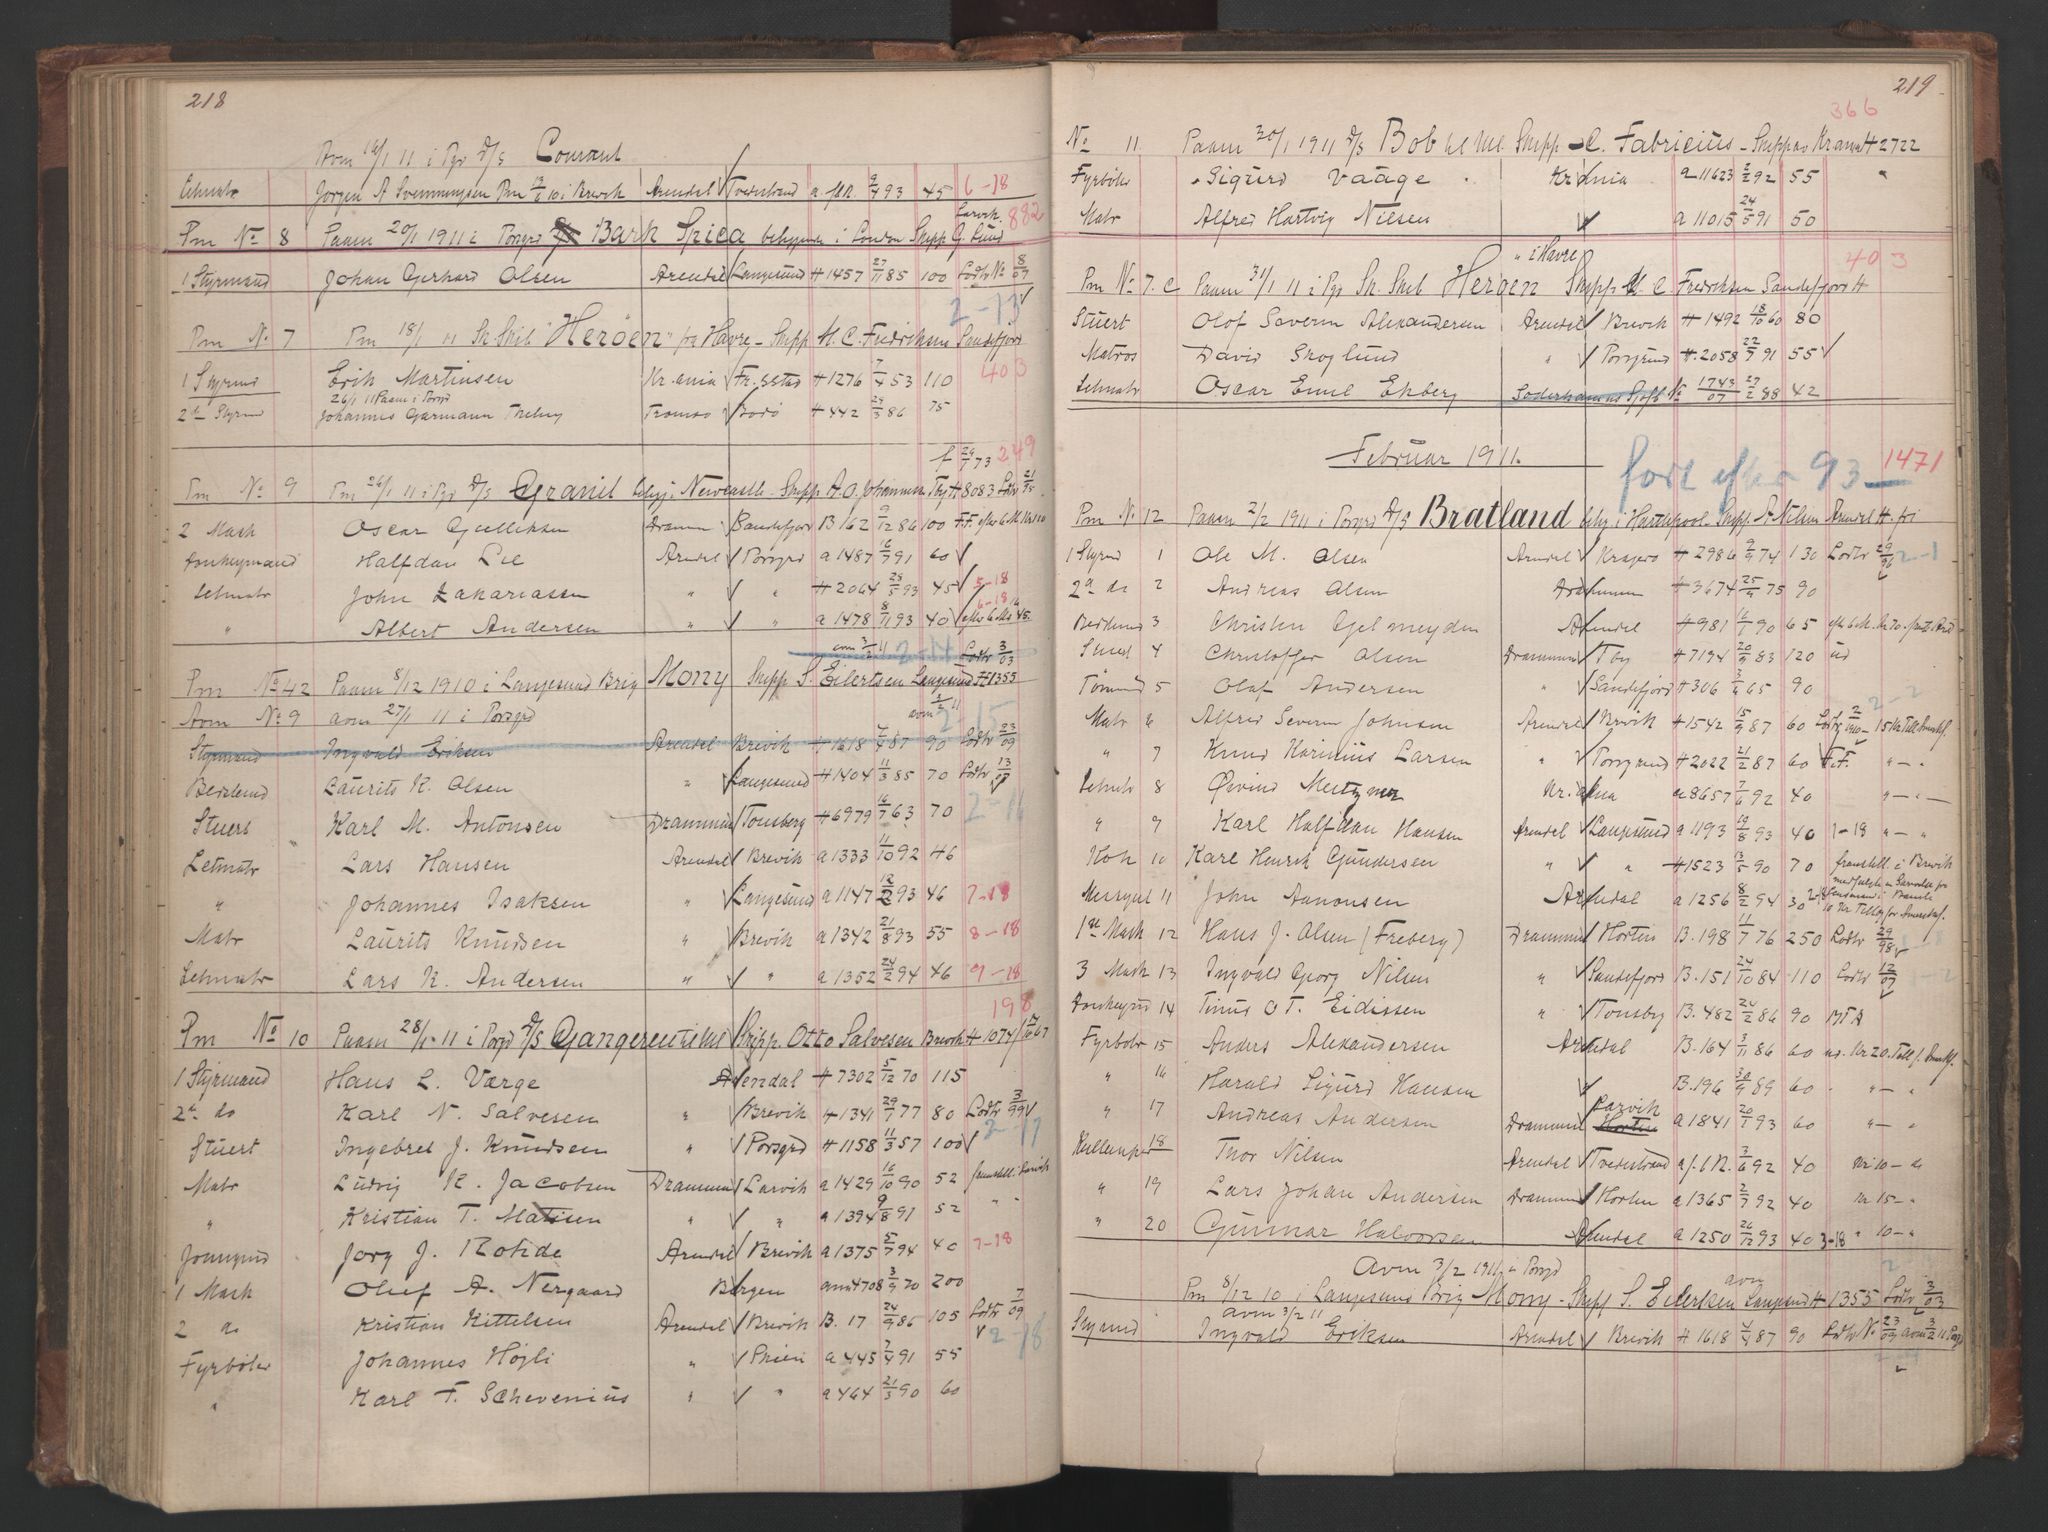 218
Avm 16/1 11 i Pgr D/S Conrant
Letmatr Jorgen A Svennungsen Pm 13/2 10 i Brevik Arendal Tvedestrand a f.l.R. 9/4 93 45 6-18
Larvik 882
Pm No 8 Paam 20/1 1911 i Porsgrd Bark Spica beliggende i London Skipp G. Lund
1 Styrmand Johan Gerhard Olsen Arendal Langesund H 1457 27/11 85 100 Ledtr No 8/09
2-13
Pm No 7 Pm 18/1 11 Sk. Skib "Heröen" fra Havre - Skipp M. C. Fredriksen Sandefjord
403
1 Styrmd Erik Martinsen Kr.ania Fr.stad H 1276 7/4 53 110
26/1 11 Paam i Porsgr
2den Styrmd Johannes Garmann Tromsö Bodö H 442 24/3 86 75
f 29/7 73 249
Pm No 9 Pm 26/1 11 i Pgr D/S Granit belig. Newcastle - Skipp A. O. Johannsen Tbg H 8083 Ledtr 21/95
2 Mask Oscar Gulliksen Dramen Sandefjord B 162 9/12 86 100 F.F. efter 6 M. Kr 110
Donkeymand Halfdan Lie Arendal Porsgrd a 1487 16/9 91 60
Letmatr John Zakariassen " " H 2064 28/5 93 45 5-18
6-18
" Albert Andersen " " a 1478 8/11 93 40 efter 6 Mr 45.
avm 3/2 11 2-14 Ledtr 3/03
Pm No 42 Paam 8/12 1910 i Langesund Brig Mony Skipp S. Eilertsen Langesund H 1355
avm 3/2 11
Avm No 9 avm 27/1 11 i Porsgrd 2-15
Styrmand Ingvald Eriksen Arendal Brevik H 1618 4/4 87 90 Ledtr 23/09
Bedstmd Laurits K. Olsen " Langesund H 1404 11/3 85 70 Ledtr 13/08
Stuert Karl M. Antonsen Drammen Tonsberg H 6979 16/7 63 70 2-16
Letmatr Lars Hansen Arendal Brevik a 1333 11/10 92 46
" Johannes Isaksen " Langesund a 1147 12/2 93 46 7-18
Matr Laurits Knudsen " Brevik a 1342 21/8 93 55 8-18
Letmatr Lars K. Andersen " " a 1352 24/2 94 46 9-18
198
Pm No 10 Paam 28/1-11 i Porgd D/S Gangeren Skipp. Otto Salvesen Brevik H 1074
1 Styrmand Hans L. Værge Arendal H 7302 5/12 70 115
2en do Karl N. Salvesen " Brevik H 1341 29/1 77 80 Ledtr 3/99
2-17
Stuert Ingebret J. Knudsen " Porsgrd H 1158 11/3 57 100
Matr Ludvig K. Jacobsen Drammen Larvik a 1429 16/10 90 52 fremstill. i Larvik
" Kristian T. Matisen " " a 1394 9/8 91 52 " "
Jonngmd Jorg J. Rohde Arendal Brevik a 1375 5/7 94 40 7-18
1 Mask Oluf A. Nergaard Bergen anm 4708 3/9 70 200
2 do Kristian Kittelsen Arendal Brevik B. 17 24/9 86 105 Ledtr 7/09
2-18
Fyrböter Johannes Höjli " Skien a 445 7/4 91 55
" Karl F. Schevenius " " a 464 21/3 90 60
219
366
No 11 Paam 30/1 1911 D/S Bob Skipp C. Fabricius - Skipp Kr.ania H 2722
Fyrböter Sigurd Vaage Kr.ania a 11623 2/2 92 55 "
Matr Alfred Hartvig Nilsen a 11015 24/5 91 50
" i Havre 403
Pm No 7. c Paam 31/1 11 i Pgr Sk. Skib Heröen Skipp M. C. Fredriksen Sandefjord H
Stuert Olof Severin Alexandersen Arendal Brevik H 1492 18/10 60 80
Matros David Skoglund " Porsgrund H. 2058 22/7 91 55
Letmatr Oscar Emil Ekberg Söderhamns Sjöf. No 1743/07 27/2 88 42
Februar 1911.
fort efter 93 1471
Pm No 12 Paam 2/2 1911 i Porsgrd D/S Bratland belig. i Harthepool Skipp A Nilsen Arendal H fri
1 Styrmd 1 Ole M. Olsen Arendal Kragerö H 2986 9/9 74 130 Ledtr 29/96 2-1
2en do 2 Andreas Olsen Drammen H 3674 25/4 75 90
Bedstmd 3 Christen Gjelmeyden Arendal H 981 16/1 90 65 efter 6 M. Kr 70.
Stuert 4 Christoffer Olsen Drammen Tbg H 7194 20/9 83 120 ud
Tömmd 5 Olaf Andersen " Sandefjord H 306 3/4 65 90
2-2
Matr 6 Alfred Severin Johnsen Arendal Brevik H 1542 15/9 87 60 Ledtr 2/1910 - 15 Kr Till
" 7 Knud Karinius Larsen " Porsgrund H 2022 21/2 87 60 H.F. " - "
Letmtr 8 Øivind Kr.ania a 8657 7/6 92 40 " - " -
" 9 Karl Halfdan Hansen Arendal Langesund a 1193 19/8 93 40 1-18 " - "
Kok 10 Karl Henrik Gundersen " " H 1523 13/5 90 70 fremstill. i Brevik
Messegut 11 John Aanonsen Arendal a 1256 8/2 94 30 2-18
1ste Mask 12 Hans J. Olsen (Freberg) Drammen Horten B. 198 11/7 76 250 Ledtr 29/98 1-8
3 Mask 13 Ingvald Georg Nilsen " Sandefjord B. 151 24/10 84 110 Ledtr 12/07 1-2
Donkeymd 14 Tinus O T. Eidissen " Tonsbg B. 482 24/2 86 90
Fyrbötr 15 Anders Alexandersen Arendal B. 164 3/11 86 60 Kr 20. Till f.
" 16 Harald Sigurd Hansen B. 196 30/9 89 60 " - "
" 17 Andreas Andersen Drammen Larvik Horten a 1841 20/7 93 60 " - "
Kullemper 18 Thor Nilsen Arendal Tvedestrand a f. l R. 3/6 92 40 Kr 10 - do
" 19 Lars Johan Andersen Drammen Horten a 1365 2/7 92 40 Kr 15 - "
" 20 Gunnar Halvorsen Arendal a 1250 26/12 93 40 3-18 " 10 - "
Avm 3/2 1911 i Porsgd
Pm 8/12 10 i Langesund Brig Mony - Skipp S. Eilertsen avm Langesund H 1355 Ledtr 3/03
avm 3/2 11
Styrmd Ingvald Eriksen Arendal Brevik H 1618 4/4 87 90 Ledtr No 23/09 avm 3/2 11 Porsg